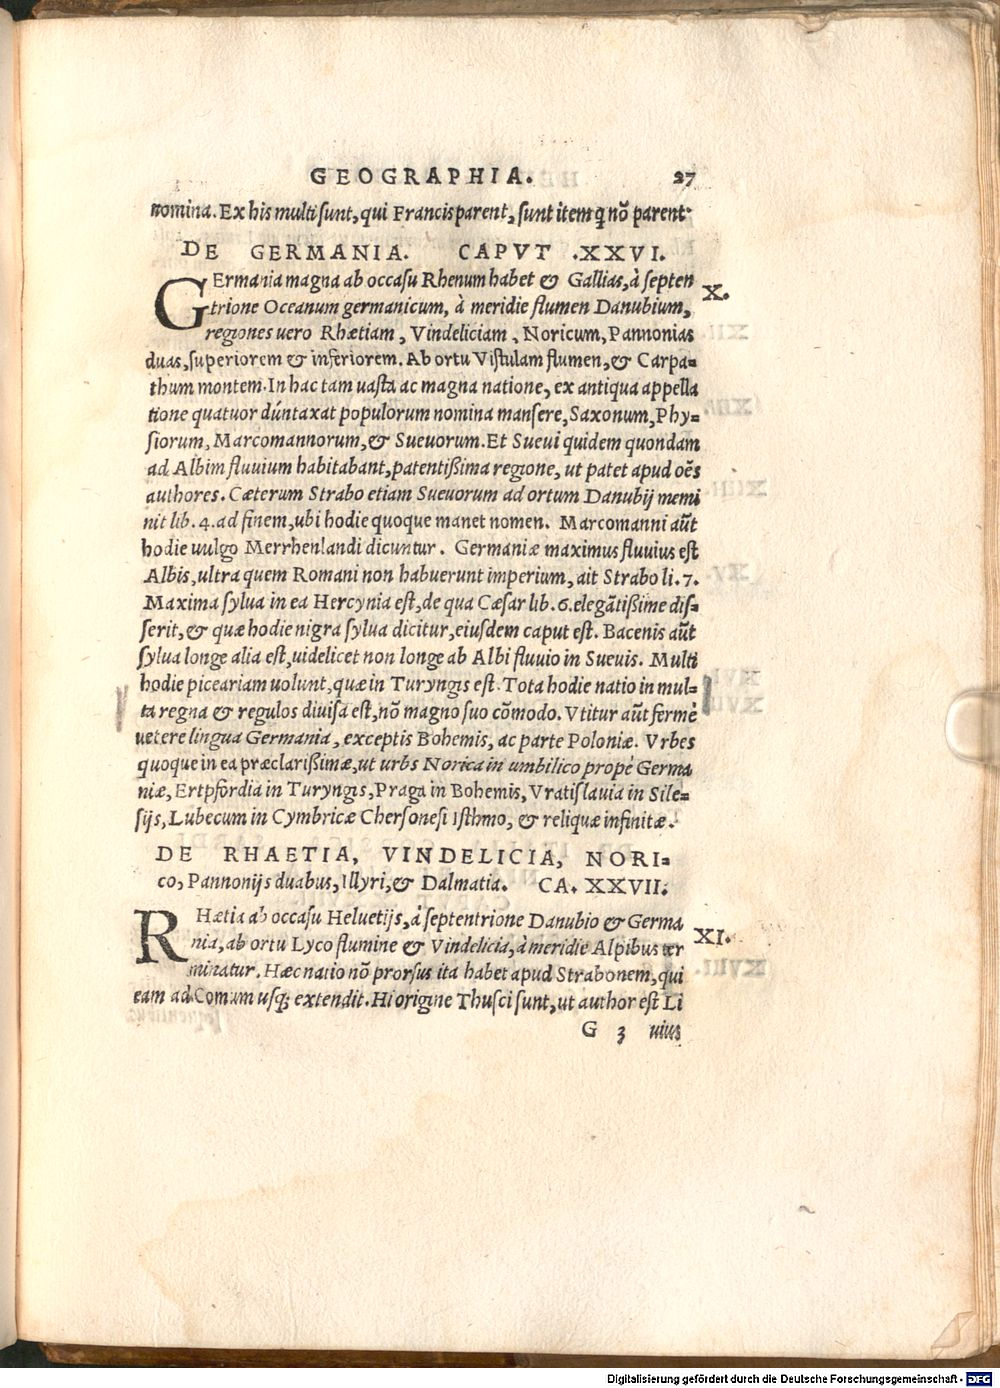 GEOGRAPHIA. 27
nomina. Ex his multi sunt, qui Francis parent, sunt item q̃ nõ parent
DE GERMANIA. CAPVT .XXVI.
GErmania magna ab occasu Rhenum habet & Gallias, à septen X.
trione Oceanum germanicum, à meridie flumen Danubium,
regiones uero Rhætiam, Vindeliciam, Noricum, Pannonias
duas, superiorem & inferiorem. Ab ortu Vistulam flumen, & Carpa=
thum montem. In hac tam uasta ac magna natione, ex antiqua appella
tione quatuor dúntaxat populorum nomina mansere, Saxonum, Phy=
siorum, Marcomannorum, & Sueuorum. Et Sueui quidem quondam
ad Albim fluuium habitabant, patentißima regione, ut patet apud oẽs
authores. Cæterum Strabo etiam Sueuorum ad ortum Danubij memi
nit lib. 4. ad finem, ubi hodie quoque manet nomen. Marcomanni aũt
hodie uulgo Merrhenlandi dicuntur. Germaniæ maximus fluuius est
Albis, ultra quem Romani non habuerunt imperium, ait Strabo li. 7.
Maxima sylua in ea Hercynia est, de qua Cæsar lib. 6. elegãtißime dis=
serit, & quæ hodie nigra sylua dicitur, eiusdem caput est. Bacenis aũt
sylua longe alia est, uidelicet non longe ab Albi fluuio in Sueuis. Multi
hodie piceariam uolunt, quæ in Turyngis est. Tota hodie natio in mul=
ta regna & regulos diuisa est, nõ magno suo cõmodo. Vtitur aũt fermè
uetere lingua Germania, exceptis Bohemis, ac parte Poloniæ. Vrbes
quoque in ea præclarißimæ, ut urbs Norica in umbilico propè Germa
niæ, Ertpfordia in Turyngis, Praga in Bohemis, Vratislauia in Sile=
sijs, Lubecum in Cymbricæ Chersonesi Isthmo, & reliquæ infinitæ.
DE RHAETIA, VINDELICIA, NORI=
co, Pannonijs duabus, Illyri, & Dalmatia. CA. XXVII.
RHætia ab occasu Heluetijs, à septentrione Danubio & Germa
nia, ab ortu Lyco flumine & Vindelicia, à meridie Alpibus ter XI.
minatur. Hæc natio nõ prorsus ita habet apud Strabonem, qui
eam ad Comum usq; extendit. Hi origine Thusci sunt, ut author est Li
G 3 uius
Digitalisierung gefördert durch die Deutsche Forschungsgemeinschaft - DFG